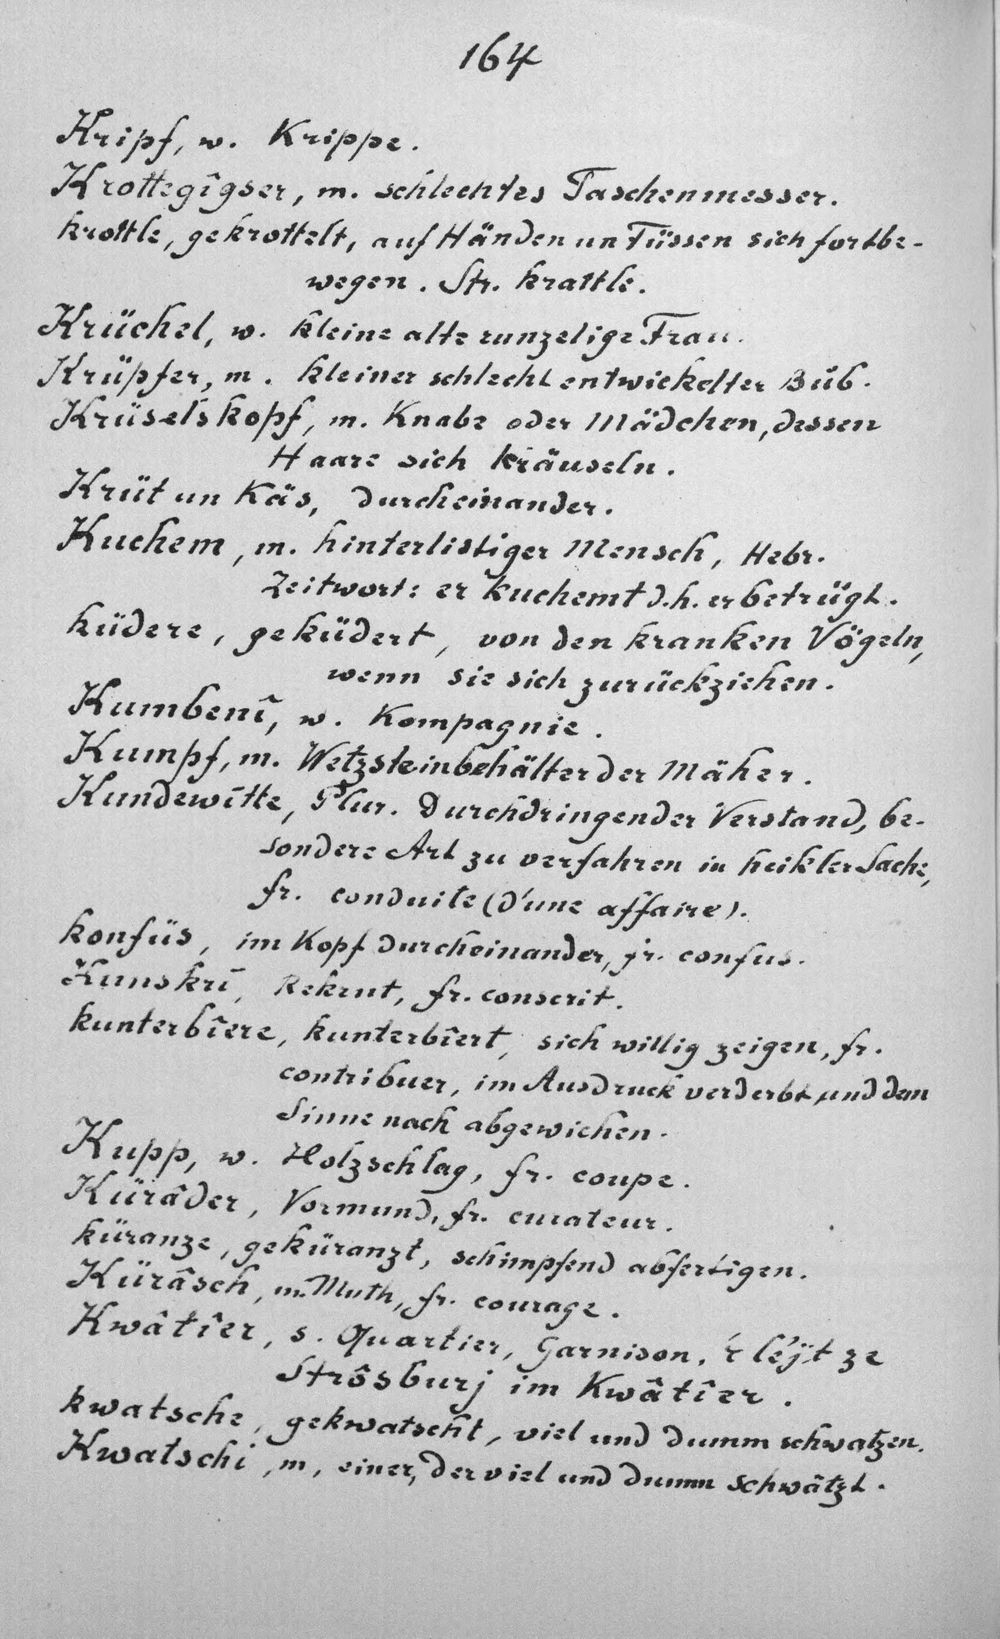 164
Kripf, w. Krippe.
Krottegîgser, m. schlechtes Taschenmesser.
krottle, gekrottelt, auf Händen un Füssen sich fortbe-
wegen. Str. krattle.
Krüchel, w. kleine alte runzelige Frau.
Krüpfer, m. kleiner schlecht entwickelter Bub.
Krüselskopf, m. Knabe oder Mädchen, dessen
Haare sich kräuseln.
Krüt un Käs, durcheinander.
Kuchem, m. hinterlistiger Mensch, Hebr.
Zeitwort: er kuchemt d.h. er betrügt.
küdere, geküdert, von den kranken Vögeln,
wenn sie sich zurückziehen.
Kumbenî, w. Kompagnie.
Kumpf, m. Wetzsteinbehälter der Mäher.
Kundewitte, Plur. Durchdringender Verstand, be-
sondere Art zu verfahren in heikler Sache,
fr. conduite (d'une affaire).
konfüs, im Kopf durcheinander, fr. confus.
Kunskrî, Rekrut, fr. conscrit.
kunterbîere, kunterbîert, sich willig zeigen, fr.
contribuer, im Ausdruck verderbt und dem
Sinne nach abgewichen.
Kupp, w. Holzschlag, fr. coupe.
Kürâder, Vormund, fr. curateur.
küranze, geküranzt, schimpfend abfertigen.
Kürâsch, m. Muth, fr. courage.
Kwâtîer, s. Quartier, Garnison, 'r lejt ze
Strôsburj im Kwâtîer.
kwatsche, gekwatscht, viel und dumm schwatzen.
Kwatschi, m, einer, der viel und dumm schwätzt.